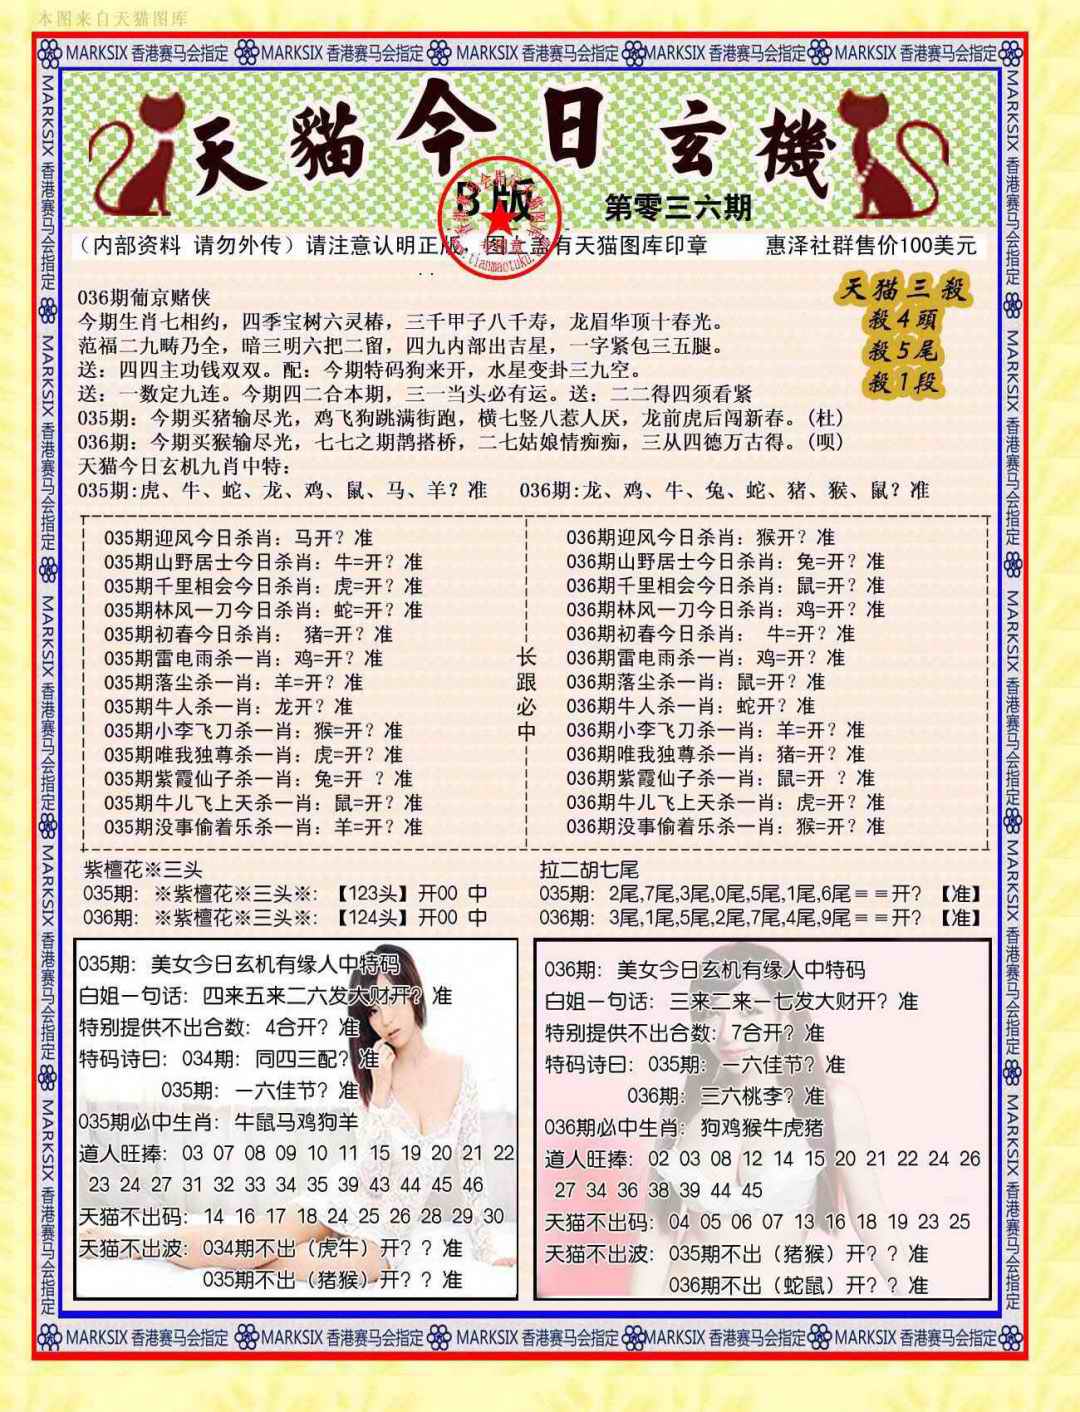 本图来自天猫图库
MARKSIX 香港赛马会指定 MARKSIX 香港赛马会指定 MARKSIX 香港赛马会指定 MARKSIX 香港赛马会指定 MARKSIX 香港赛马会指定
天貓今日玄機
B版
第零三六期
（内部资料 请勿外传）请注意认明正版，图上盖有天猫图库印章 惠泽社群售价100美元
天猫三殺
殺4頭
殺5尾
殺1段
036期葡京赌侠
今期生肖七相约，四季宝树六灵椿，三千甲子八千寿，龙眉华顶十春光。
范福二九畴乃全，暗三明六把二留，四九内部出吉星，一字紧包三五腿。
送：四四主功钱双双。配：今期特码狗来开，水星变卦三九空。
送：一数定九连。今期四二合本期，三一当头必有运。送：二二得四须看紧
035期：今期买猪输尽光，鸡飞狗跳满街跑，横七竖八惹人厌，龙前虎后闯新春。(杜)
036期：今期买猴输尽光，七七之期鹊搭桥，二七姑娘情痴痴，三从四德万古得。(呗)
天猫今日玄机九肖中特：
035期:虎、牛、蛇、龙、鸡、鼠、马、羊？准 036期:龙、鸡、牛、兔、蛇、猪、猴、鼠？准
035期迎风今日杀肖：马开？准
035期山野居士今日杀肖：牛=开？准
035期千里相会今日杀肖：虎=开？准
035期林风一刀今日杀肖：蛇=开？准
035期初春今日杀肖： 猪=开？准
035期雷电雨杀一肖：鸡=开？准
035期落尘杀一肖：羊=开？准
035期牛人杀一肖：龙开？准
035期小李飞刀杀一肖：猴=开？准
035期唯我独尊杀一肖：虎=开？准
035期紫霞仙子杀一肖：兔=开 ？准
035期牛儿飞上天杀一肖：鼠=开？准
035期没事偷着乐杀一肖：羊=开？准
长跟必中
036期迎风今日杀肖：猴开？准
036期山野居士今日杀肖：兔=开？准
036期千里相会今日杀肖：鼠=开？准
036期林风一刀今日杀肖：鸡=开？准
036期初春今日杀肖： 牛=开？准
036期雷电雨杀一肖：鸡=开？准
036期落尘杀一肖：鼠=开？准
036期牛人杀一肖：蛇开？准
036期小李飞刀杀一肖：羊=开？准
036期唯我独尊杀一肖：猪=开？准
036期紫霞仙子杀一肖：鼠=开 ？准
036期牛儿飞上天杀一肖：虎=开？准
036期没事偷着乐杀一肖：猴=开？准
紫檀花※三头
035期：※紫檀花※三头※:【123头】开00 中
036期：※紫檀花※三头※:【124头】开00 中
拉二胡七尾
035期：2尾,7尾,3尾,0尾,5尾,1尾,6尾＝＝开？【准】
036期：3尾,1尾,5尾,2尾,7尾,4尾,9尾＝＝开？【准】
035期：美女今日玄机有缘人中特码
白姐一句话：四来五来二六发大财开？准
特别提供不出合数：4合开？准
特码诗曰：034期：同四三配？准
035期：一六佳节？准
035期必中生肖：牛鼠马鸡狗羊
道人旺捧：03 07 08 09 10 11 15 19 20 21 22
23 24 27 31 32 33 34 35 39 43 44 45 46
天猫不出码：14 16 17 18 24 25 26 28 29 30
天猫不出波：034期不出（虎牛）开？？准
035期不出（猪猴）开？？准
036期：美女今日玄机有缘人中特码
白姐一句话：三来二来一七发大财开？准
特别提供不出合数：7合开？准
特码诗曰：035期：一六佳节？准
036期：三六桃李？准
036期必中生肖：狗鸡猴牛虎猪
道人旺捧：02 03 08 12 14 15 20 21 22 24 26
27 34 36 38 39 44 45
天猫不出码：04 05 06 07 13 16 18 19 23 25
天猫不出波：035期不出（猪猴）开？？准
036期不出（蛇鼠）开？？准
MARKSIX 香港赛马会指定 MARKSIX 香港赛马会指定 MARKSIX 香港赛马会指定 MARKSIX 香港赛马会指定 MARKSIX 香港赛马会指定
MARKSIX 香港赛马会指定 MARKSIX 香港赛马会指定 MARKSIX 香港赛马会指定 MARKSIX 香港赛马会指定 MARKSIX 香港赛马会指定
MARKSIX 香港赛马会指定 MARKSIX 香港赛马会指定 MARKSIX 香港赛马会指定 MARKSIX 香港赛马会指定 MARKSIX 香港赛马会指定